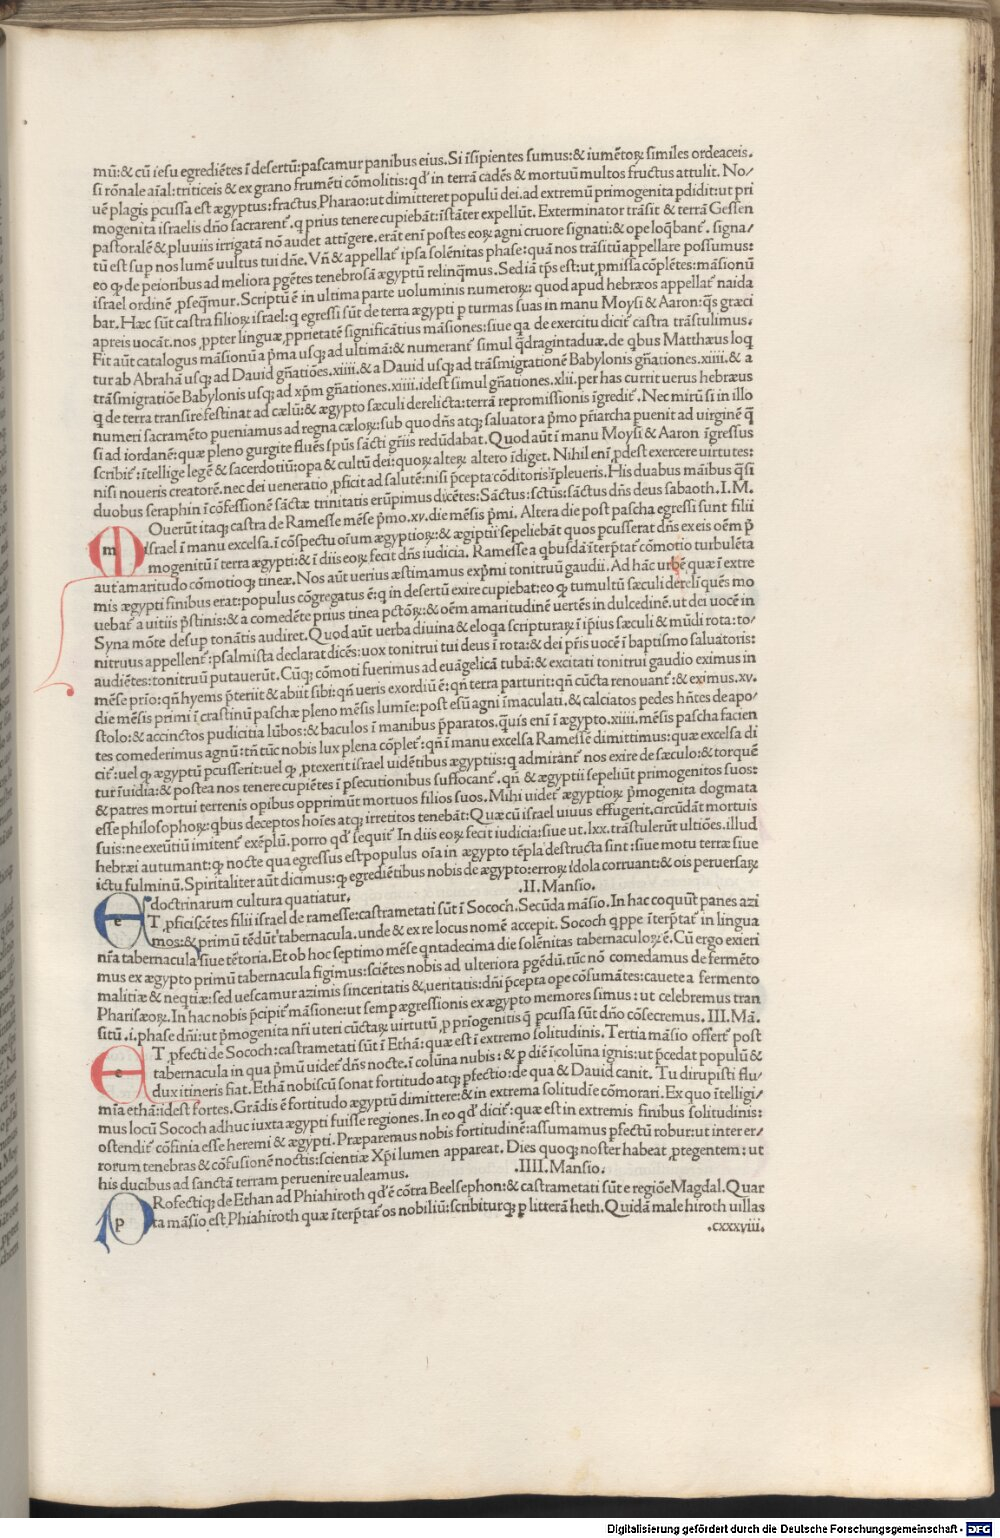 mū:&cū iesu egrediētes ī desertū:pascamur panibus eius.Si īsipientes sumus:&iumētoꝝ similes ordeaceis.
si rōnale aīal:triticeis & ex grano frumēti cōmolitis:qd̕ in terrā cadēs & mortuū multos fructus attulit. No/
uē plagis pcussa est ægyptus:fractus,Pharao:ut dimitteret populū dei.ad extremū primogenita pdidit:ut pri
mogenita israelis dño sacrarent̕.q prius tenere cupiebāt:īstāter expellūt. Exterminator trāsit & terrā Gessen
pastoralē & pluuiis irrigatā nō audet attīgere.erāt enī postes eoꝝ agni cruore signati:& ope loq̄bant̕. signa/
tū est sup nos lumē uultus tui dñe.Vñ & appellat̕ ipsa solēnitas phase:quā nos trāsitū appellare possumus:
eo ꝙ de peioribus ad meliora pgētes tenebrosā ægyptū relinqmus.Sed iā tp̄s est:ut,pmissa cōplētes:māsionū
israel ordinē ,pseq̄mur.Scriptū ē in ultima parte uoluminis numeroꝝ: quod apud hebræos appellat̕ naida
bar.Hæc sūt castra filioꝝ israel:q egressi sūt de terra ægypti p turmas suas in manu Moysi & Aaron:q̄s græci
apreis uocāt.nos ,ppter linguæ,pprietatē significātius māsiones:siue qa de exercitu dicit̕ castra trāstulimus.
Fit aūt catalogus māsionū a p̄ma usq; ad ultimā:& numerant̕ simul q̄dragintaduæ.de qbus Matthæus loq
tur ab Abrahā usq; ad Dauid gñatiōes.xiiii.& a Dauid usq; ad trāsmigrationē Babylonis gñationes.xiiii.& a
trāsmigratiōe Babylonis usq; ad xp̄m gñationes.xiiii.idest simul gñationes.xlii.per has currit uerus hebræus
q de terra transire festinat ad cælū:& ægypto sæculi derelicta:terrā repromissionis īgredit̕. Nec mirū si in illo
numeri sacramēto pueniamus ad regna cæloꝝ:sub quo dñs atq; saluator a p̄mo pñarcha puenit ad uirginē q̄
si ad iordanē:quæ pleno gurgite fluēs spūs sācti gr̄iis redūdabat. Quod aūt ī manu Moysi & Aaron īgressus
scribit̕:ītellige legē & sacerdotiū:opa & cultū dei:quoꝝ alteꝝ altero īdiget. Nihil enī,pdest exercere uirtutes:
nisi noueris creatorē.nec dei ueneratio ,pficit ad salutē:nisi p̄cepta cōditoris īpleueris. His duabus māibus q̄si
duobus seraphin ī cōfessionē sāctæ trinitatis erūpimus dicētes:Sāctus:sctūs:sāctus dñs deus sabaoth.I.M.
m Ouerūt itaq; castra de Ramesse mēse p̄mo.xv.die mēsis p̄mi. Altera die post pascha egressi sunt filii
israel ī manu excelsa.ī cōspectu oīum ægyptioꝝ:& ægiptii sepeliebāt quos pcusserat dñs ex eis oēm p̄
mogenitū ī terra ægypti:& ī diis eoꝝ fecit dñs iudicia. Ramesse a qbusdā īterp̄tat̕ cōmotio turbulēta
aut amaritudo cōmotioq; tineæ. Nos aūt uerius æstimamus exp̄mi tonitruū gaudii. Ad hāc urbē quæ ī extre
mis ægypti finibus erat:populus cōgregatus ē:q in desertū exire cupiebat:eo ꝙ tumultū sæculi derelīquēs mo
uebat̕ a uitiis p̄stinis:& a comedēte prius tinea pctōꝝ:& oēm amaritudinē uertēs in dulcedinē.ut dei uocē in
Syna mōte desup tonātis audiret.Quod aūt uerba diuina & eloqa scripturaꝝ ī ip̄ius sæculi & mūdi rota:to/
nitruus appellent̕:psalmista declarat dicēs:uox tonitrui tui deus ī rota:& dei pr̄is uocē ī baptismo saluatoris:
audiētes:tonitruū putauerūt. Cūq; cōmoti fuerimus ad euāgelicā tubā:& excitati tonitrui gaudio eximus in
mēse prīo:qñ hyems p̄teriit & abiit sibi:qñ ueris exordiū ē:qñ terra parturit:qñ cūcta renouant̕:& eximus.xv.
die mēsis primi ī crastinū paschæ pleno mēsis lumīe:post esū agni īmaculati.& calciatos pedes hñtes de apo/
stolo:& accinctos pudicitia lūbos:& baculos ī manibus p̄paratos.q̄uis enī ī ægypto.xiiii.mēsis pascha facien
tes comederimus agnū:tñ tūc nobis lux plena cōplet̕:qñ ī manu excelsa Ramessē dimittimus:quæ excelsa di
cit̕:uel ꝙ ægyptū pcusserit:uel ꝙ ,ptexerit israel uidētibus ægyptiis:q admirant̕ nos exire de sæculo:& torquē
tur īuidia:& postea nos tenere cupiētes ī psecutionibus suffocant̕.qñ & ægyptii sepeliūt primogenitos suos:
& patres mortui terrenis opibus opprimūt mortuos filios suos.Mihi uidet̕ ægyptioꝝ p̄mogenita dogmata
esse philosophoꝝ:qbus deceptos hoīes atq; irretitos tenebāt:Quæ cū israel uiuus effugerit.circūdāt mortuis
suis:ne exeūtiū imitent̕ exēplū.porro qd̕ sequit̕ In diis eoꝝ fecit iudicia:siue ut.lxx.trāstulerūt ultiōes.illud
hebræi autumant:ꝙ nocte qua egressus est populus oīa in ægypto tēpla destructa sint:siue motu terræ siue
ictu fulminū.Spiritaliter aūt dicimus:ꝙ egrediētibus nobis de ægypto:erroꝝ idola corruant:& oīs peruersaꝝ
doctrinarum cultura quatiatur. .II.Mansio.
e T,pficiscētes filii israel de ramesse:castrametati sūt ī Sococh. Secūda māsio. In hac coquūt panes azi
mos:& primū tēdūt tabernacula. unde & ex re locus nomē accepit. Sococh qppe īterp̄tat̕ in lingua
nr̄a tabernacula siue tētoria. Et ob hoc septimo mēse qntadecima die solēnitas tabernaculoꝝ ē. Cū ergo exieri
mus ex ægypto primū tabernacula figimus:sciētes nobis ad ulteriora pgēdū.tūc nō comedamus de fermēto
malitiæ & neqtiæ:sed uescamur azimis sinceritatis & ueritatis:dñi p̄cepta ope cōsumātes:cauete a fermento
Pharisæoꝝ.In hac nobis p̄cipit̕ māsione:ut semp ægressionis ex ægypto memores simus:ut celebremus tran
sitū.i.phase dñi:ut p̄mogenita nr̄i uteri cūctaꝝ uirtutū,p priogenitis q̄ pcussa sūt dño cōsecremus. III.Mā.
e T ,pfecti de Sococh:castrametati sūt ī Ethā:quæ est ī extremo solitudinis. Tertia māsio offert̕ post
tabernacula in qua p̄mū uidet̕ dñs nocte.ī colūna nubis:& p diē ī colūna ignis:ut p̄cedat populū &
dux itineris fiat. Ethā nobiscū sonat fortitudo atq; pfectio:de qua & Dauid canit. Tu dirupisti flu/
mīa ethā:idest fortes.Grādis ē fortitudo ægyptū dimittere:& in extrema solitudīe cōmorari. Ex quo ītelligi/
mus locū Sococh adhuc iuxta ægypti fuisse regiones. In eo qd̕ dicit̕:quæ est in extremis finibus solitudinis:
ostendit̕ cōfinia esse heremi & ægypti. Præparemus nobis fortitudinē:assumamus pfectū robur:ut inter er/
rorum tenebras & cōfusionē noctis:scientiæ Xp̄i lumen appareat. Dies quoq; noster habeat ,ptegentem: ut
his ducibus ad sanctā terram peruenire ualeamus. .IIII.Mansio.
p Rofectiq; de Ethan ad Phiahiroth qd̕ ē cōtra Beelsephon:& castrametati sūt e regiōe Magdal. Quar
ta māsio est Phiahiroth quæ īterp̄tat̕ os nobiliū:scribiturq; p litterā heth. Quidā male hiroth uillas
.cxxxviii.
Digitalisierung gefördert durch die Deutsche Forschungsgemeinschaft - DFG